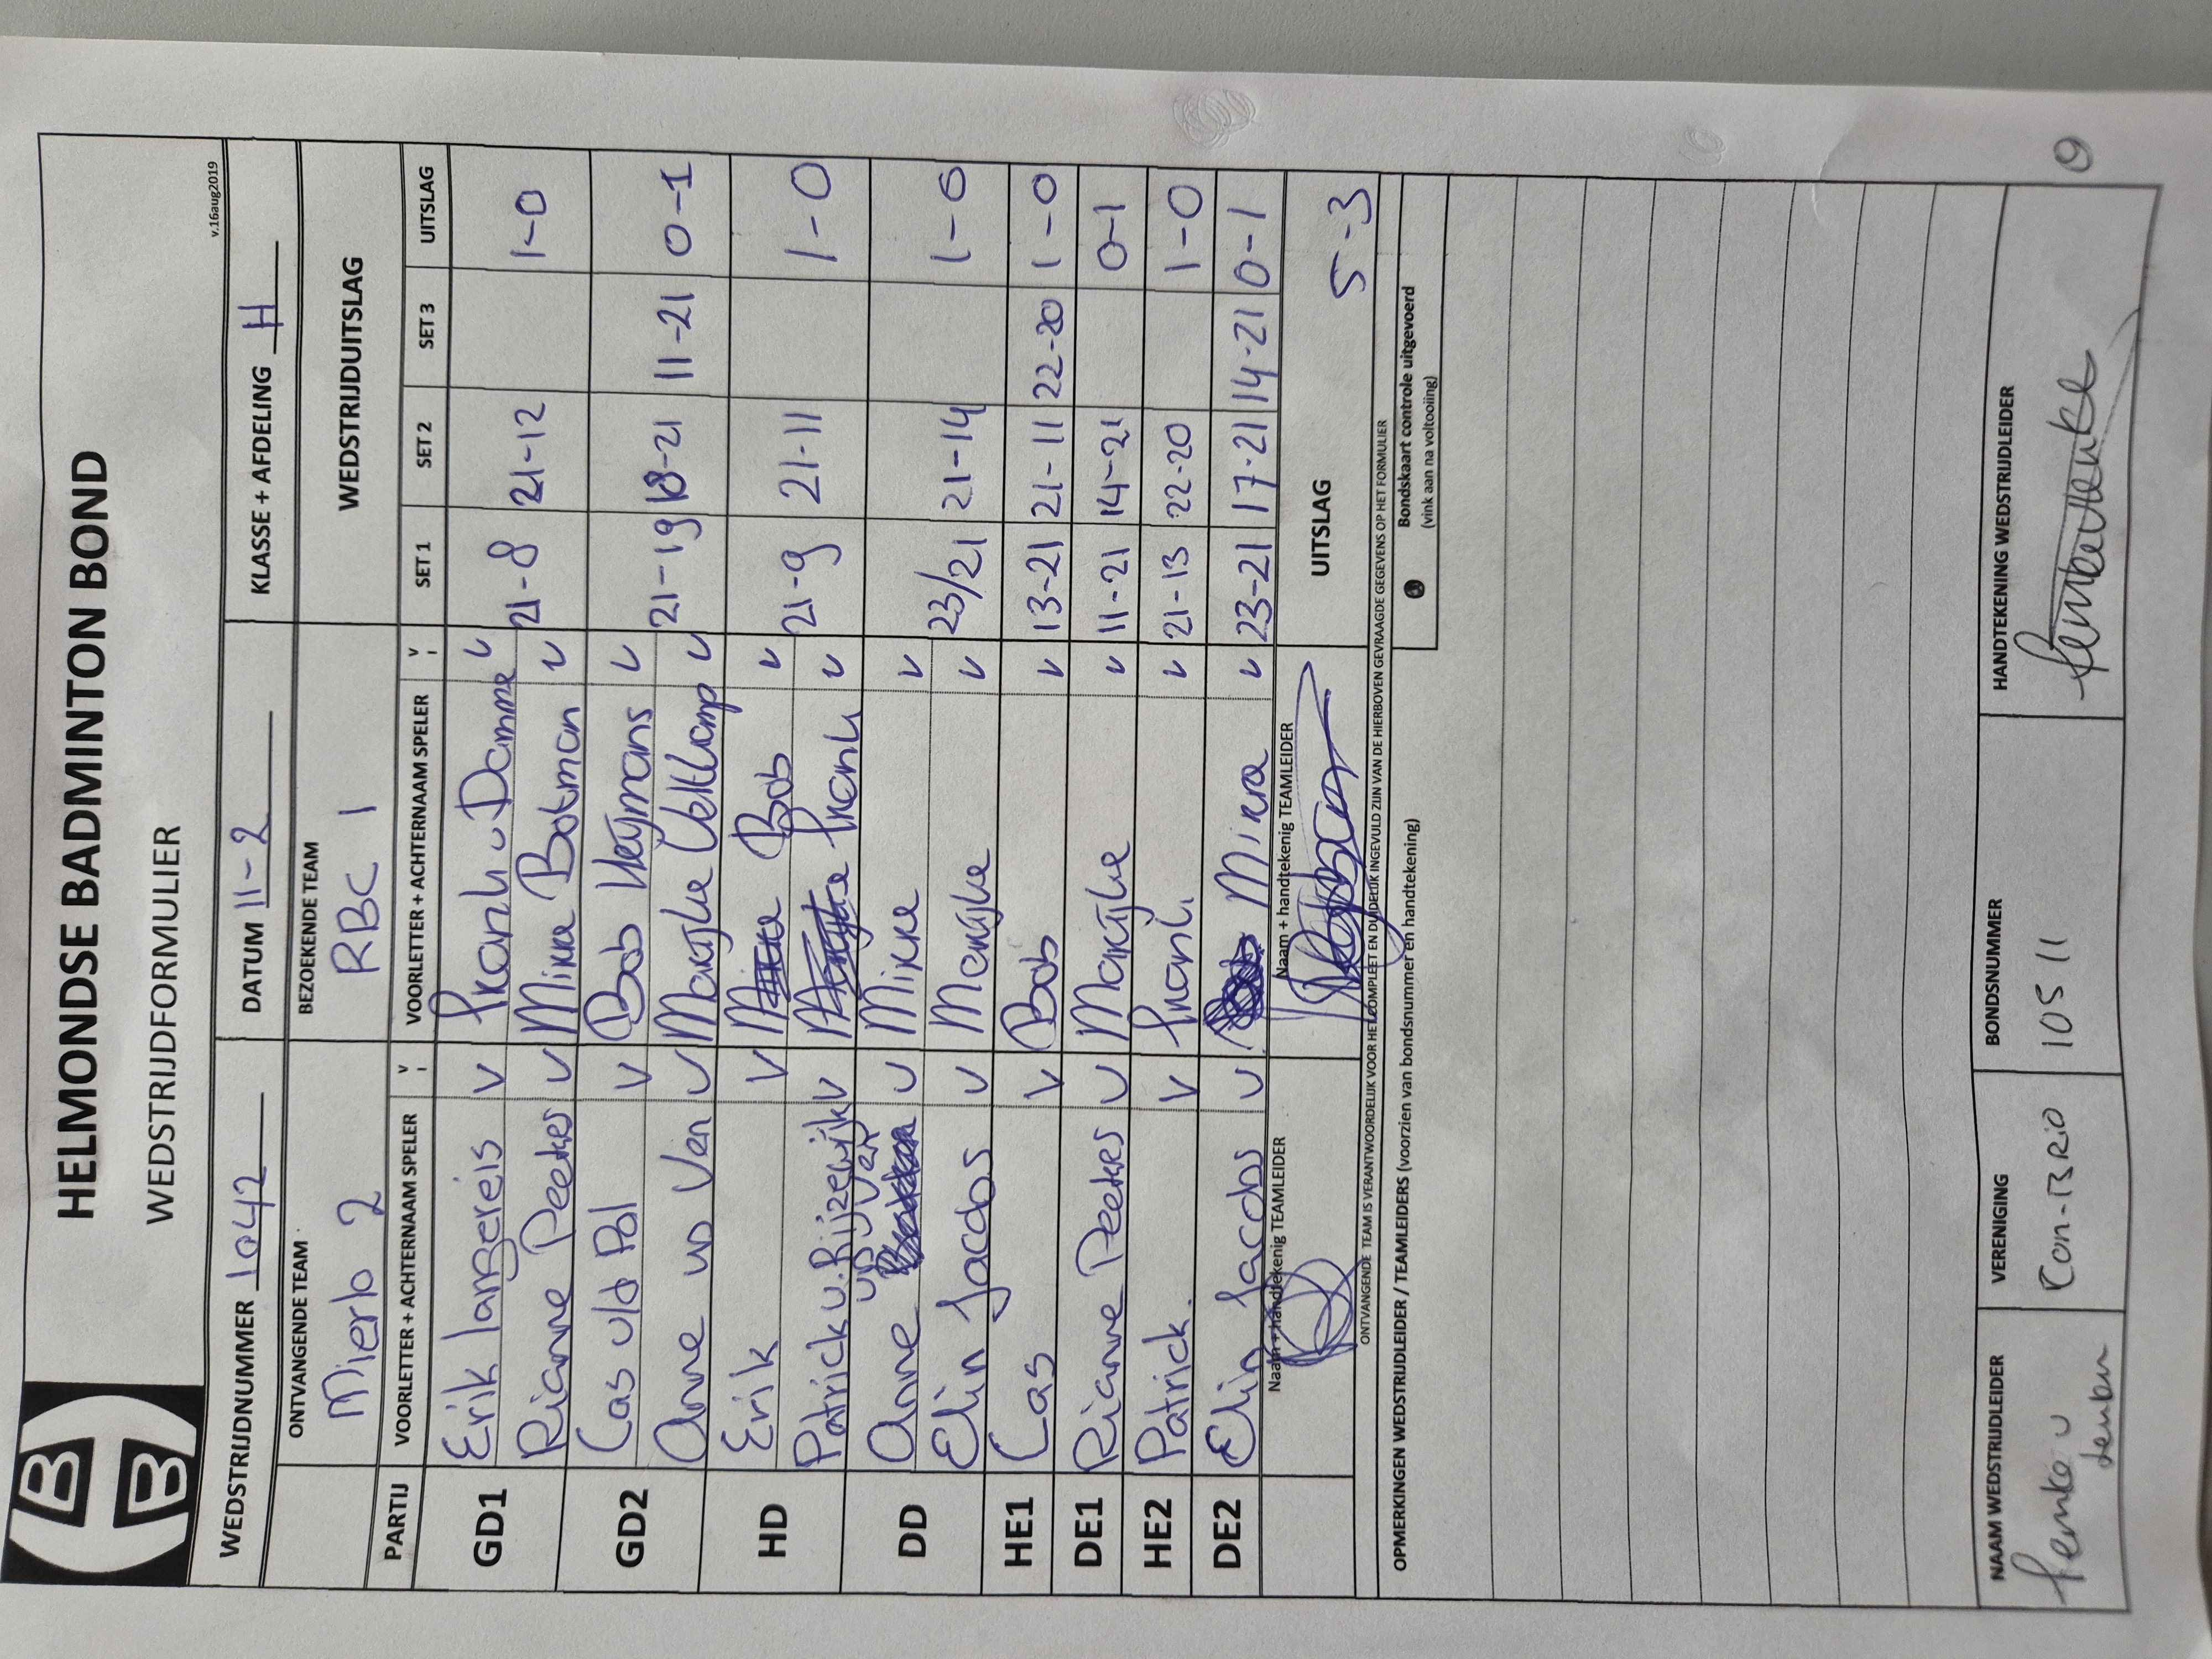 HELMONDSE BADMINTON BOND
WEDSTRIJDFORMULIER
v.16aug2019
WEDSTRIJDNUMMER 1042 DATUM 11-2 KLASSE + AFDELING H
ONTVANGENDE TEAM BEZOEKENDE TEAM WEDSTRIJDUITSLAG
Mierlo 2 RBC 1
PARTIJ VOORLETTER + ACHTERNAAM SPELER V VOORLETTER + ACHTERNAAM SPELER V SET 1 SET 2 SET 3 UITSLAG
GD1 Erik langereis V Frank v Damme v
Rianne Peeters v Mirre Botman v 21-8 21-12 1-0
GD2 Cas vld Pol V Bob Heijmans v
Anne vd Ven v Marijke Veltkamp v 21-19 18-21 11-21 0-1
HD Erik V Bob v
Patrick v. Rijzewijk V Frank v 21-9 21-11 1-0
DD Anne vd Ven v Mirre v
Elin Jacobs v Marijke v 23/21 21-14 1-0
HE1 Cas V Bob v 13-21 21-11 22-20 1-0
DE1 Rianne Peeters v Marijke v 11-21 14-21 0-1
HE2 Patrick. V Frank v 21-13 22-20 1-0
DE2 Elin Jacobs v Mirre v 23-21 17-21 14-21 0-1
Naam + handtekenig TEAMLEIDER Naam + handtekenig TEAMLEIDER UITSLAG 5-3
ONTVANGENDE TEAM IS VERANTWOORDELIJK VOOR HET COMPLEET EN DUIDELIJK INGEVULD ZIJN VAN DE HIERBOVEN GEVRAAGDE GEGEVENS OP HET FORMULIER
OPMERKINGEN WEDSTRIJDLEIDER / TEAMLEIDERS (voorzien van bondsnummer en handtekening)
Bondskaart controle uitgevoerd
(vink aan na voltooiing)
NAAM WEDSTRIJDLEIDER VERENIGING BONDSNUMMER HANDTEKENING WEDSTRIJDLEIDER
Femke v Con-BRIO 10511